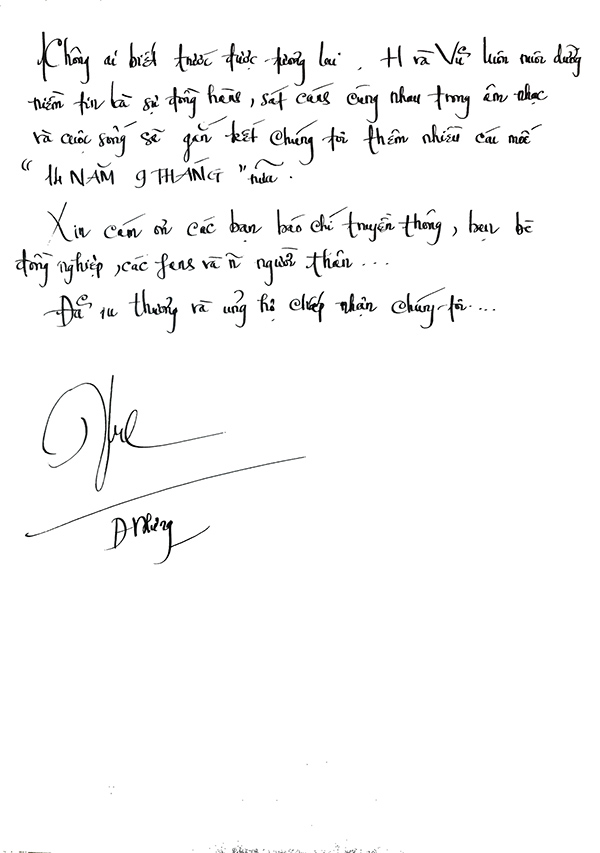 Không ai biết trước được tương lai. H và Vũ luôn nuôi dưỡng
niềm tin là sự đồng hành, sát cánh cùng nhau trong âm nhạc
và cuộc sống sẽ gắn kết chúng tôi thêm nhiều cái mốc
“14 NĂM 9 THÁNG” nữa.
Xin cám ơn các bạn báo chí truyền thông, bạn bè
đồng nghiệp, các fans và ~n người thân...
Đã iu thương và ủng hộ chấp nhận chúng tôi....
D Nhưng